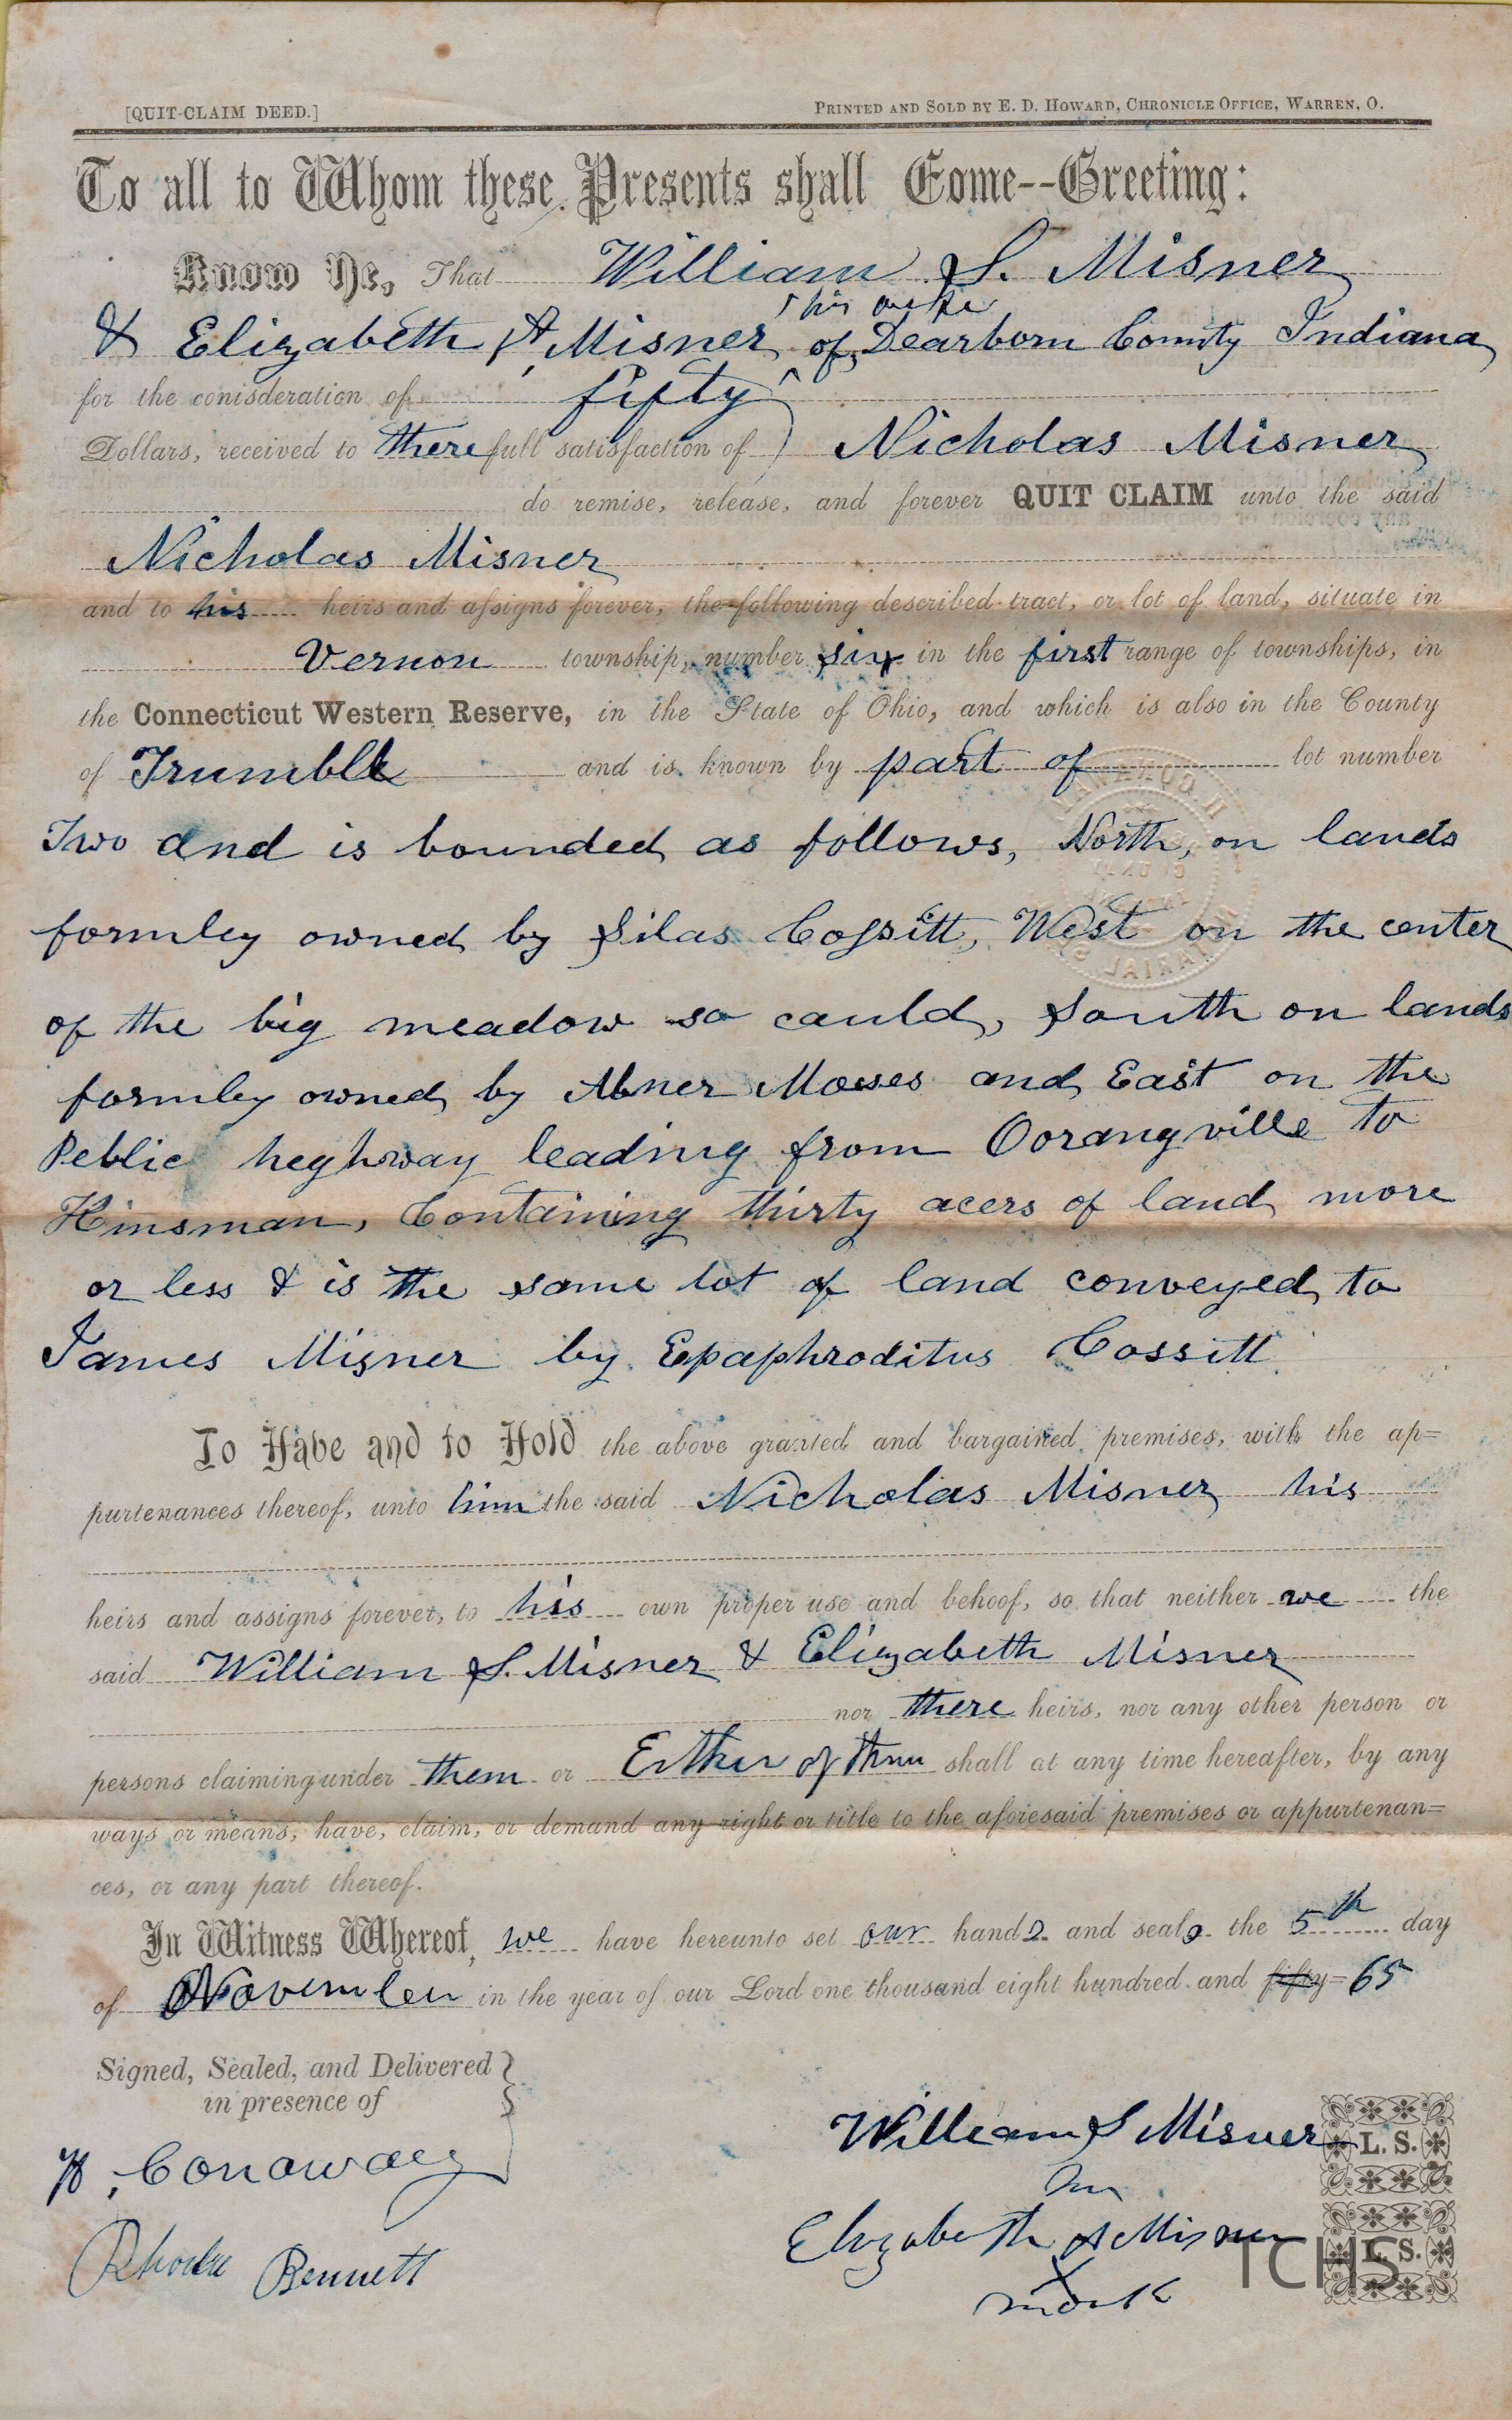 [QUIT-CLAIM DEED.] PRINTED AND SOLD BY E. D. HOWARD, CHRONICLE OFFICE, WARREN, O.
To all to Whom these Presents shall Come--Greeting:
Know Ye, That William S. Misner
his wife
& Elizabeth A Misner of Dearborn County Indiana
for the conisderation of fifty
Dollars, received to there full satisfaction of Nicholas Misner
do remise, release, and forever QUIT CLAIM unto the said
Nicholas Misner
and to his heirs and assigns forever, the following described tract, or lot of land, situate in
Vernon township, number six in the first range of townships, in
the Connecticut Western Reserve, in the State of Ohio, and which is also in the County
of Trumble and is known by part of lot number
Two and is bounded as follows, North, on lands
formley owned by Silas Cossitt, West on the center
of the big meadow so cauld, South on lands
formley owned by Abner Moses and East on the
Peblic heghway leading from Oorangville to
Kinsman, Containing thirty acers of land more
or less & is the same lot of land conveyed to
James Misner by Epaphroditus Cossitt
To Have and to Hold the above granted and bargained premises, with the ap=
purtenances thereof, unto him the said Nicholas Misner his
heirs and assigns forever, to his own proper use and behoof, so that neither we the
said William S. Misner & Elizabeth Misner
nor there heirs, nor any other person or
persons claiming under them or Either of them shall at any time hereafter, by any
ways or means, have, claim, or demand any right or title to the aforesaid premises or appurtenan=
ces, or any part thereof.
In Witness Whereof, we have hereunto set our hands and seals the 5th day
of November in the year of our Lord one thousand eight hundred and fifty= 65
Signed, Sealed, and Delivered
in presence of
William S Misner L. S.
Conaway
Elizabeth A Misner L. S.
X
mark
Rhoda Bennett
TCHS